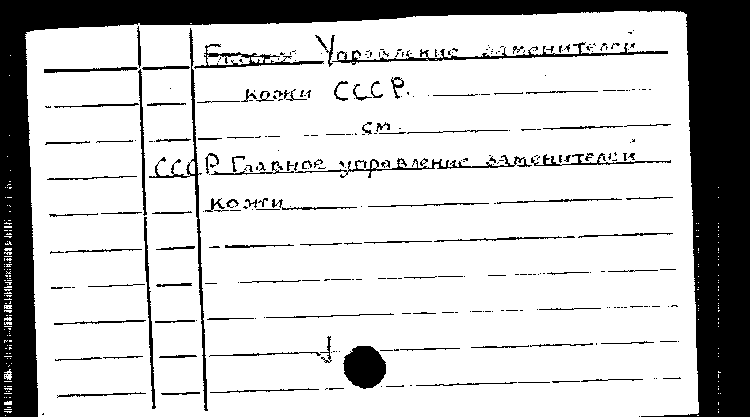 Главное Управление заменителей
кожи СССР.
см.
СССР. Главное управление заменителей
кожи